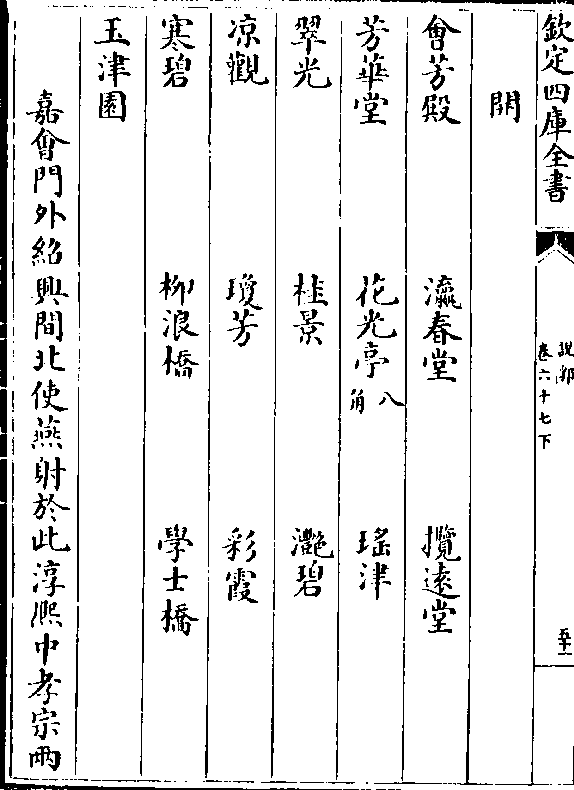 欽定四庫全書
說郛
卷六十七下
五十一
開
會芳殿 瀛春堂 攬遠堂
芳華堂 花光亭八角 瑤津
翠光 桂景 灔碧
凉觀 瓊芳 彩霞
寒碧 柳浪橋 學士橋
玉津園
嘉會門外紹興間北使燕射於此淳熙中孝宗兩